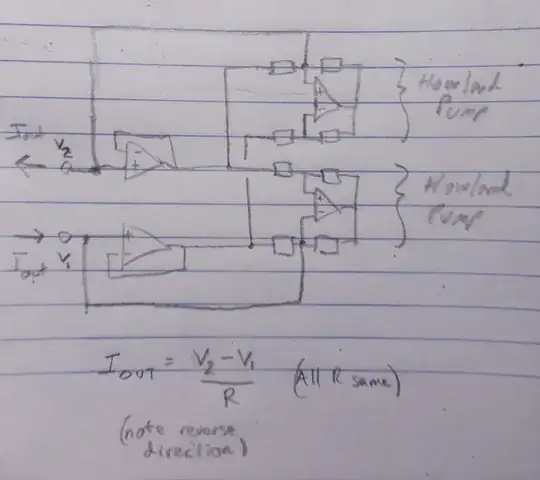 Howland
Pump
Iout
V2
- +
+ -
+ -
Howland
Pump
+ -
+ -
Iout V1
IOUT = V2 - V1 / R (All R same)
(note reverse
direction)